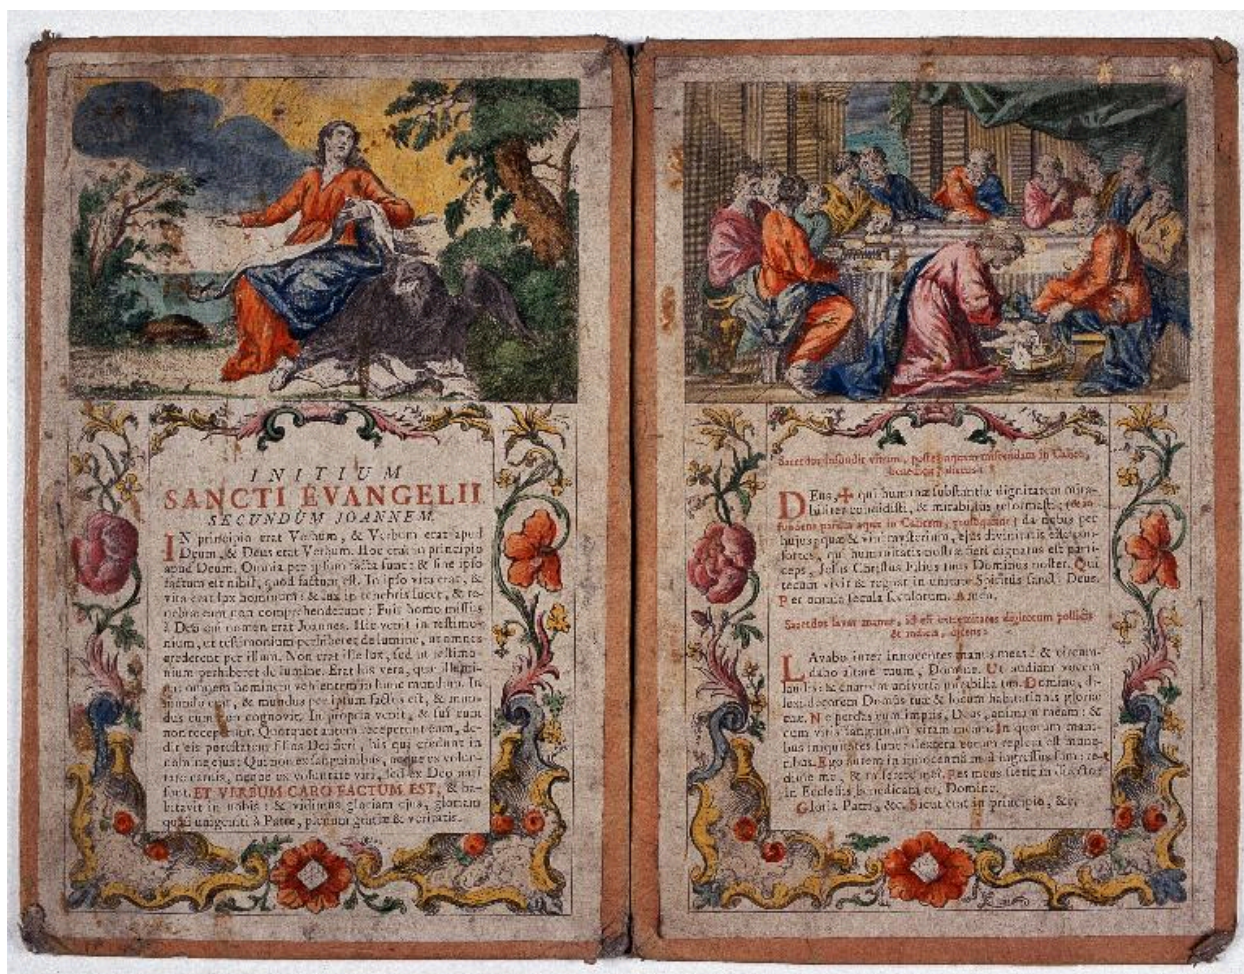 INITIUM
SANCTI EVANGELII
SECUNDUM JOANNEM.
IN principio erat Verbum, & Verbum erat apud
Deum, & Deus erat Verbum. Hoc erat in principio
apud Deum. Omnia per ipsum facta sunt: & sine ipso
factum est nihil, quod factum est. In ipso vita erat, &
vita erat lux hominum: & lux in tenebris lucet, & te-
nebræ eum non comprehenderunt: Fuit homo missus
à Deo cui nomen erat Joannes. Hic venit in testimo-
nium, ut testimonium perhiberet de lumine, ut omnes
crederent per illum. Non erat ille lux, sed ut testimo-
nium perhiberet de lumine. Erat lux vera, quæ illumi-
nat omnem hominem venientem in hunc mundum. In
mundo erat, & mundus per ipsum factus est, & mun-
dus eum non cognovit. In propria venit, & sui eum
non receperunt. Quotquot autem receperunt eum, de-
dit eis potestatem filios Dei fieri, his qui credunt in
nomine ejus: Qui non ex sanguinibus, neque ex volun-
tate carnis, neque ex voluntate viri, sed ex Deo nati
sunt. ET VERBUM CARO FACTUM EST, & ha-
bitavit in nobis: & vidimus gloriam ejus, gloriam
quasi unigeniti à Patre, plenum gratiæ & veritatis.
Sacerdos infundit vinum, postea aquam miscendam in Calice,
benedicit, dicens:
DEus, ✠ qui humanæ substantiæ dignitatem mira-
biliter condidisti, & mirabilius reformasti: (& in-
fundens parum aquæ in Calicem, prosequitur:) da nobis per
hujus aquæ & vini mysterium, ejus divinitatis esse con-
sortes, qui humanitatis nostræ fieri dignatus est parti-
ceps, Jesus Christus Filius tuus Dominus noster. Qui
tecum vivit & regnat in unitate Spiritus sancti Deus.
Per omnia secula seculorum. Amen.
Sacerdos lavat manus, id est extremitates digitorum pollicis
& indicis, dicens:
LAvabo inter innocentes manus meas: & circum-
dabo altare tuum, Domine. Ut audiam vocem
laudis: & enarrem universa mirabilia tua. Domine, di-
lexi decorem Domus tuæ & locum habitationis gloriæ
tuæ. Ne perdas cum impiis, Deus, animam meam: &
cum viris sanguinum vitam meam. In quorum mani-
bus iniquitates sunt: dextera eorum repleta est mune-
ribus. Ego autem in innocentia mea ingressus sum: re-
dime me, & miserere mei. Pes meus stetit in directo:
in Ecclesiis benedicam te, Domine.
Gloria Patri, &c. Sicut erat in principio, &c.